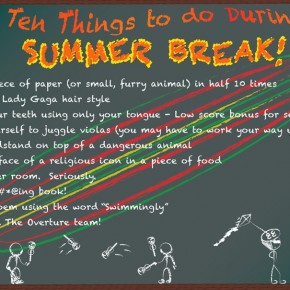 Ten Things to do Durin
SUMMER BREAK!
iece of paper (or small, furry animal) in half 10 times
Lady Gaga hair style
ur teeth using only your tongue - Low score bonus for sc
urself to juggle violas (you may have to work your way u
dstand on top of a dangerous animal
face of a religious icon in a piece of food
ur room. Seriously.
#*@ing book!
oem using the word "Swimmingly"
The Overture team!